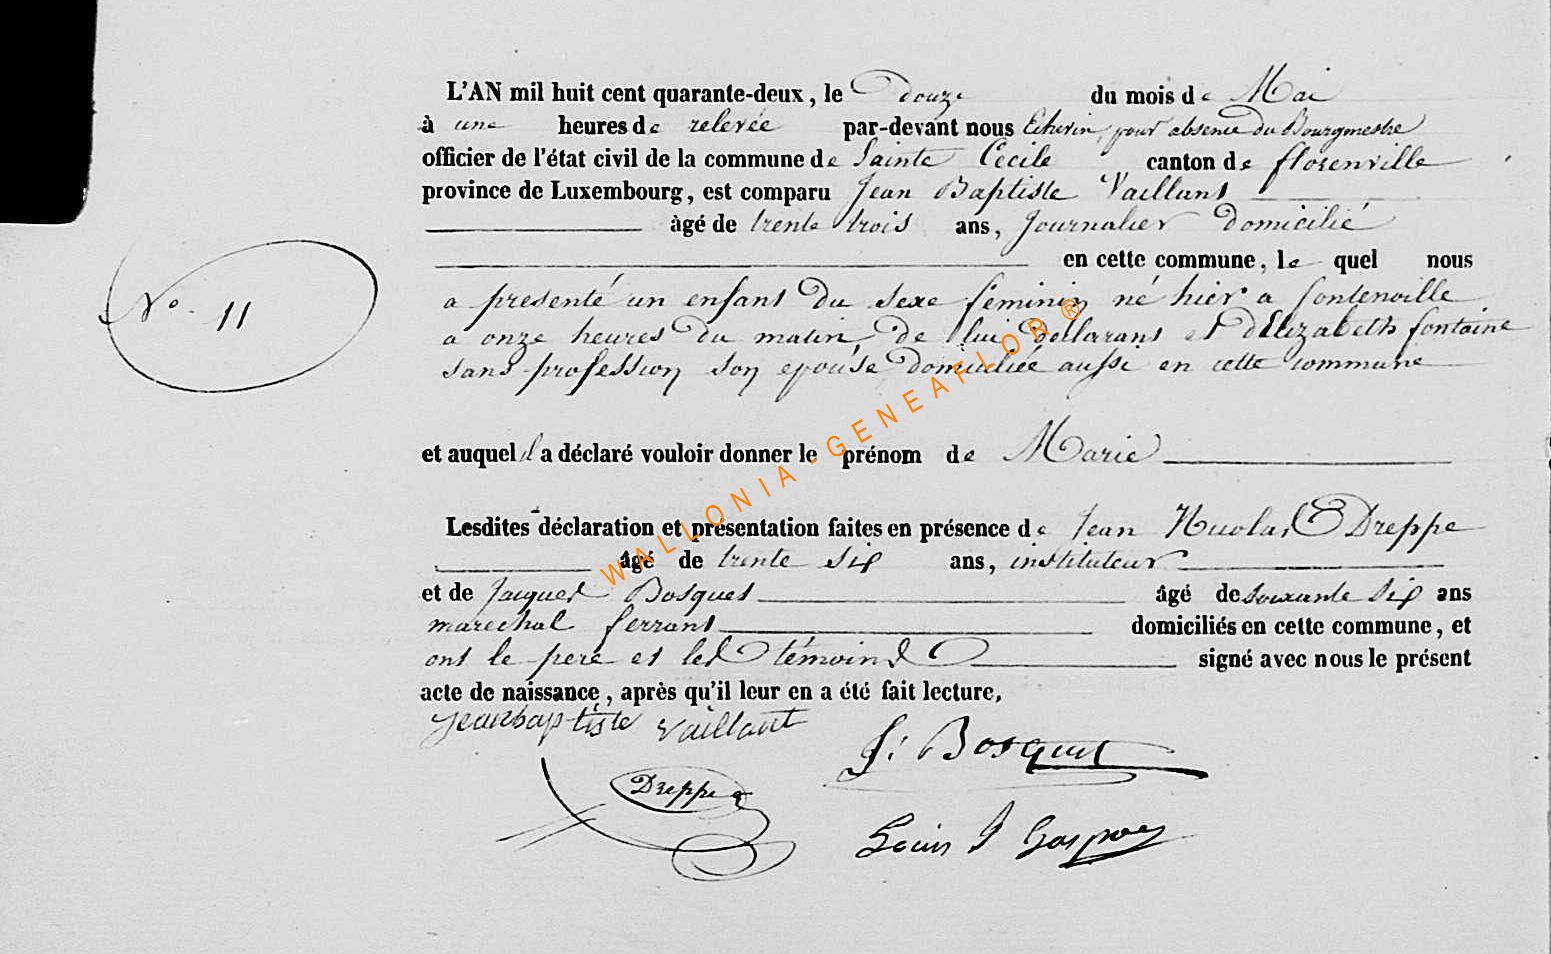 L'AN mil huit cent quarante-deux, le Douze du mois de Mai
à une heures de relevée par-devant nous Echevin, pour absence du Bourgmestre
officier de l'état civil de la commune de Sainte Cecile canton de florenville
province de Luxembourg, est comparu Jean Baptiste Vaillant
âgé de trente trois ans, Journalier Domicilié
en cette commune, le quel nous
N° 11
a presenté un enfant Du sexe féminin né hier a fontenoille
a onze heures Du matin, De lui Déclarant et d'Elizabeth fontaine
sans profession son epouse Domiciliée aussi en cette commune
et auquel il a déclaré vouloir donner le prénom de Marie
Lesdites déclaration et présentation faites en présence de Jean Nicolas Dreppe
âgé de trente six ans, instituteur
et de Jacques Bosquet âgé de soixante six ans
marechal ferrant domiciliés en cette commune, et
ont le pere et les témoins signé avec nous le présent
acte de naissance, après qu'il leur en a été fait lecture,
jeanbaptiste vaillant
J: Bosquet
Dreppe
Louis J Gaspar
WALLONIA-GENEAFLOR ®